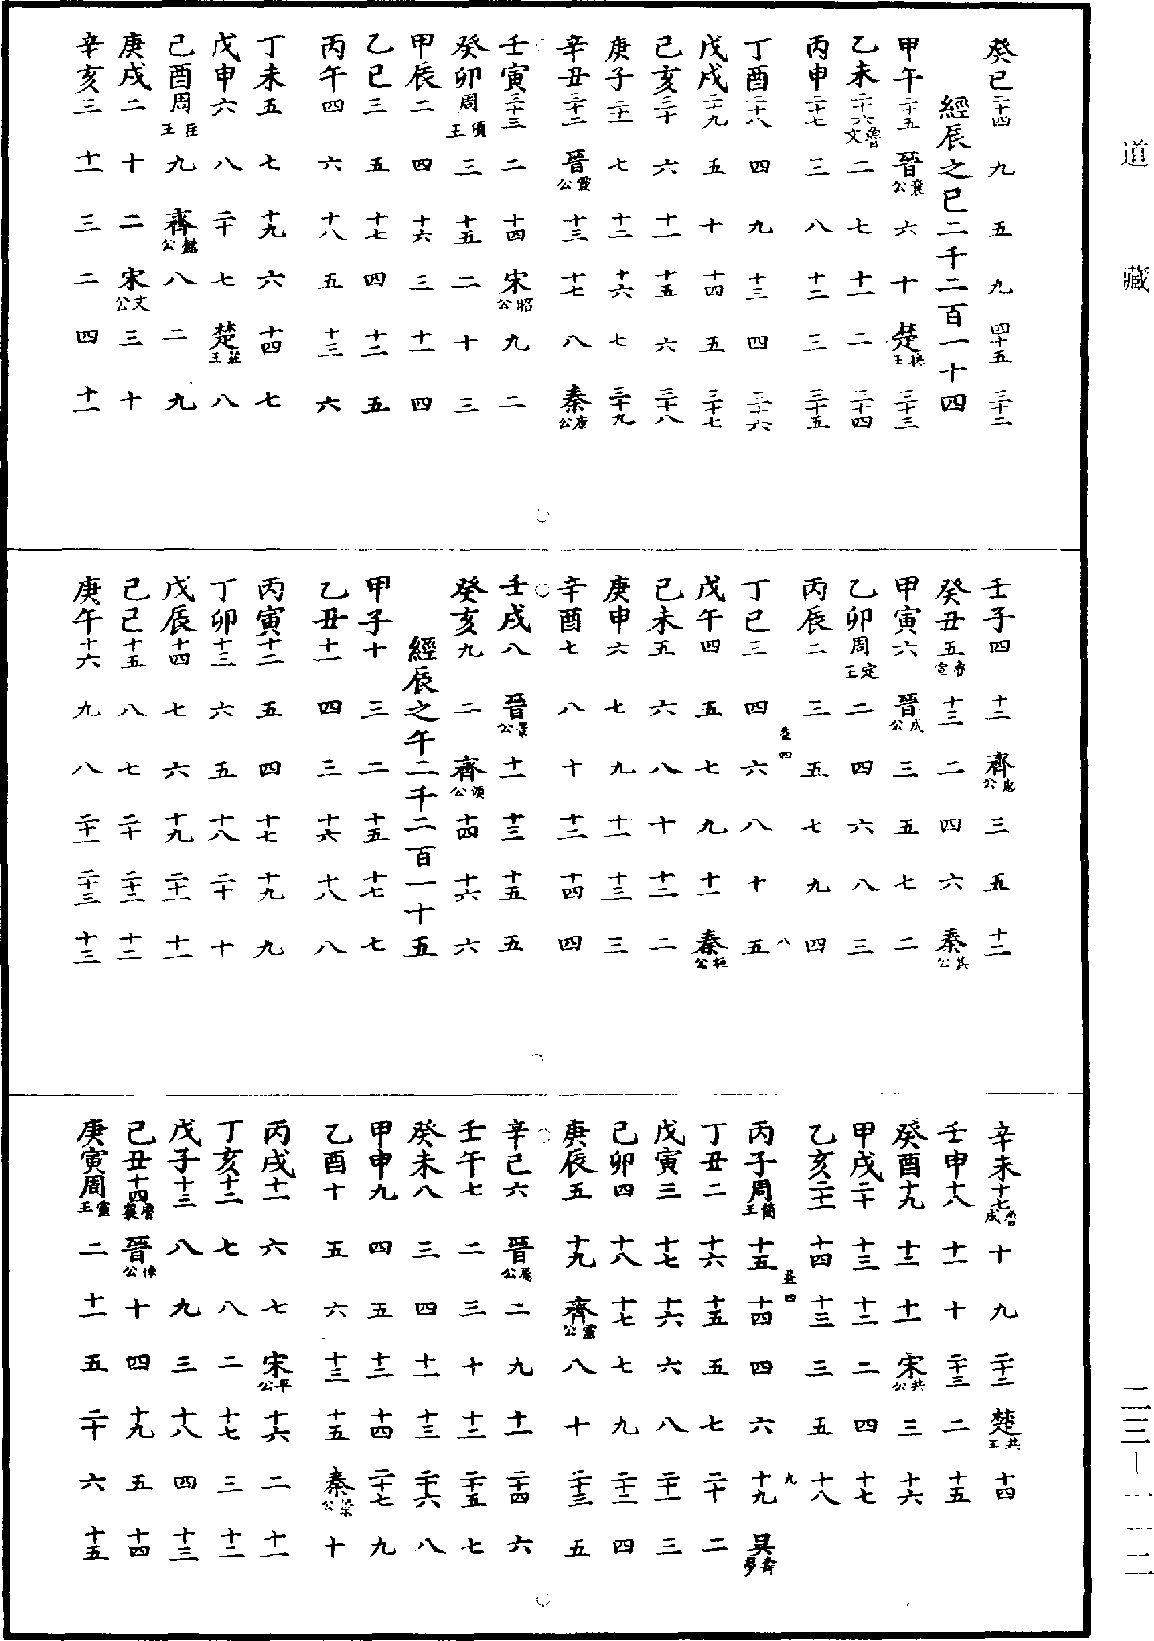 道藏
癸巳二十四 九 五 九 四十五 三十二
經辰之巳二千二百一十四
甲午二十五 晉襄公 六 十 楚穆王 三十三
乙未二十六魯文 二 七 十一 二 三十四
丙申二十七 三 八 十二 三 三十五
丁酉二十八 四 九 十三 四 三十六
戊戌二十九 五 十 十四 五 三十七
己亥三十 六 十一 十五 六 三十八
庚子三十一 七 十二 十六 七 三十九
辛丑三十二 晉靈公 十三 十七 八 秦康公
壬寅三十三 二 十四 宋昭公 九 二
癸卯周頃王 三 十五 二 十 三
甲辰二 四 十六 三 十一 四
乙巳三 五 十七 四 十二 五
丙午四 六 十八 五 十三 六
丁未五 七 十九 六 十四 七
戊申六 八 二十 七 楚莊王 八
己酉周匡王 九 齊懿公 八 二 九
庚戌二 十 二 宋文公 三 十
辛亥三 十一 三 二 四 十一
壬子四 十二 齊惠公 三 五 十二
癸丑五魯宣 十三 二 四 六 秦共公
甲寅六 晉成公 三 五 七 二
乙卯周定王 二 四 六 八 三
丙辰二 三 五 七 九 四
丁巳三 四 六 八 十 五
戊午四 五 七 九 十一 秦桓公
己未五 六 八 十 十二 二
庚申六 七 九 十一 十三 三
辛酉七 八 十 十二 十四 四
壬戌八 晉景公 十一 十三 十五 五
癸亥九 二 齊頃公 十四 十六 六
經辰之午二千二百一十五
甲子十 三 二 十五 十七 七
乙丑十一 四 三 十六 十八 八
丙寅十二 五 四 十七 十九 九
丁卯十三 六 五 十八 二十 十
戊辰十四 七 六 十九 二十一 十一
己巳十五 八 七 二十 二十二 十二
庚午十六 九 八 二十一 二十三 十三
辛未十七魯成 十 九 二十二 楚共王 十四
壬申十八 十一 十 二十三 二 十五
癸酉十九 十二 十一 宋共公 三 十六
甲戌二十 十三 十二 二 四 十七
乙亥二十一 十四 十三 三 五 十八
丙子周簡王 十五 十四 四 六 十九 吳壽夢
丁丑二 十六 十五 五 七 二十 二
戊寅三 十七 十六 六 八 二十一 三
己卯四 十八 十七 七 九 二十二 四
庚辰五 十九 齊靈公 八 十 二十三 五
辛巳六 晉厲公 二 九 十一 二十四 六
壬午七 二 三 十 十二 二十五 七
癸未八 三 四 十一 十三 二十六 八
甲申九 四 五 十二 十四 二十七 九
乙酉十 五 六 十三 十五 秦景公 十
丙戌十一 六 七 宋平公 十六 二 十一
丁亥十二 七 八 二 十七 三 十二
戊子十三 八 九 三 十八 四 十三
己丑十四魯襄 晉悼公 十 四 十九 五 十四
庚寅周靈王 二 十一 五 二十 六 十五